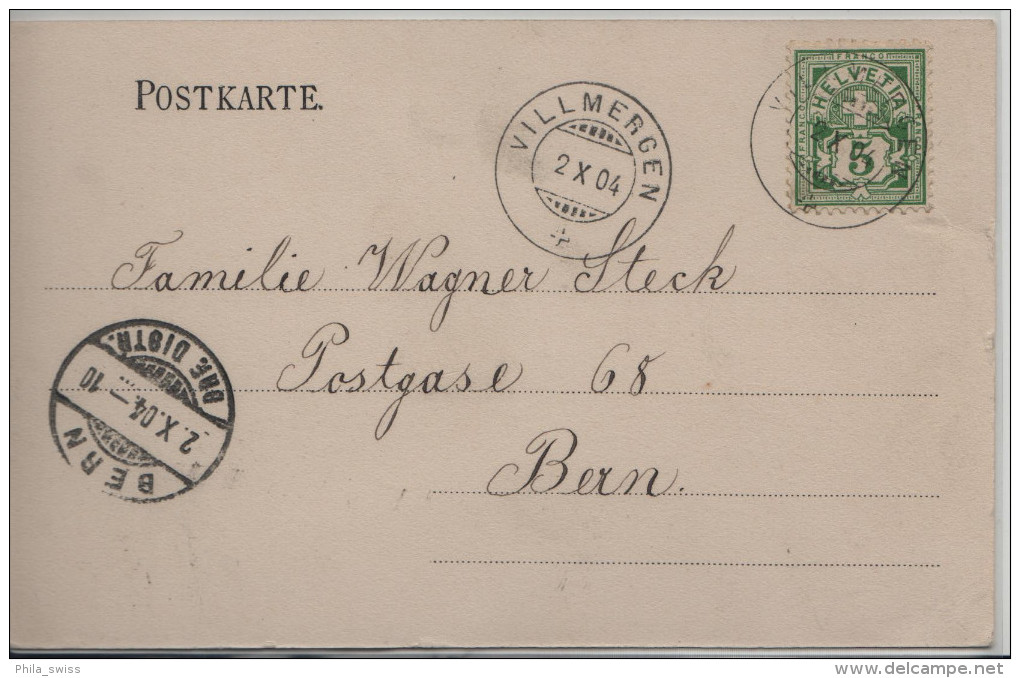 POSTKARTE.
VILLMERGEN
2 X 04
FRANCO
HELVETIA
FRANCO
5
2 X 04
Familie Wagner Steck
Postgase 68
Bern.
BERN
2.X.04.–10
BRF. DISTR.
Phila_swiss
www.delcampe.net